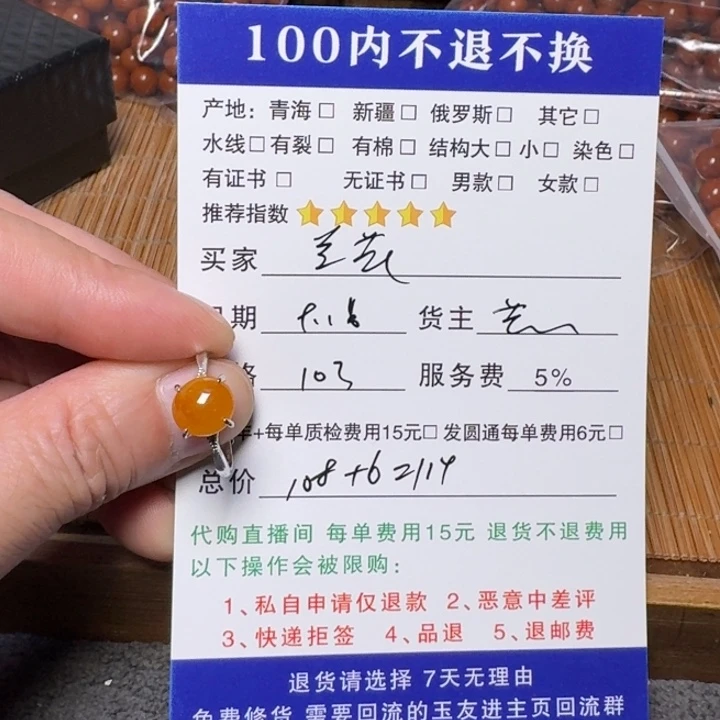 100内不退不换
产地：青海□ 新疆□ 俄罗斯□ 其它□
水线□有裂□ 有棉□ 结构大□ 小□ 染色□
有证书□ 无证书□ 男款□ 女款□
推荐指数
买家
期 货主
格 103 服务费 5%
+每单质检费用15元□ 发圆通每单费用6元□
总价 108+6=114
代购直播间 每单费用15元 退货不退费用
以下操作会被限购：
1、私自申请仅退款 2、恶意中差评
3、快递拒签 4、品退 5、退邮费
退货请选择 7天无理由
免费修货 需要回流的玉友进主页回流群